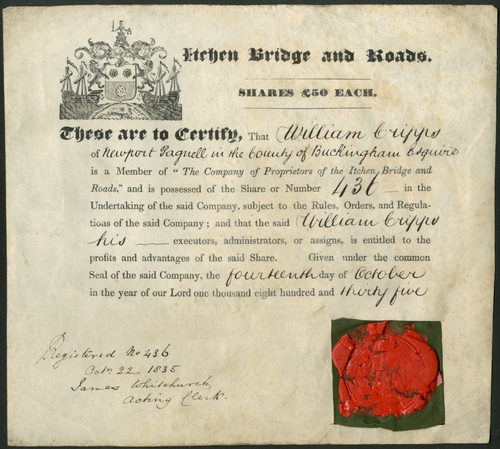 Itchen Bridge and Roads.
SHARES £50 EACH.
These are to Certify, That William Cripps
of Newport Pagnell in the County of Buckingham Esquire
is a Member of "The Company of Proprietors of the Itchen Bridge and
Roads," and is possessed of the Share or Number 436 in the
Undertaking of the said Company, subject to the Rules, Orders, and Regula-
tions of the said Company; and that the said William Cripps
his executors, administrators, or assigns, is entitled to the
profits and advantages of the said Share. Given under the common
Seal of the said Company, the fourteenth day of October
in the year of our Lord one thousand eight hundred and thirty five
Registered No 436
Octr 22 1835
James Whitchurch
Acting Clerk.